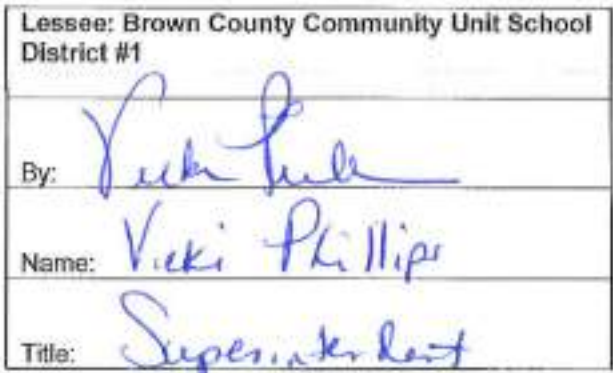 Lessee: Brown County Community Unit School
District #1
By:
Name: Vicki Phillips
Title: Superintendent